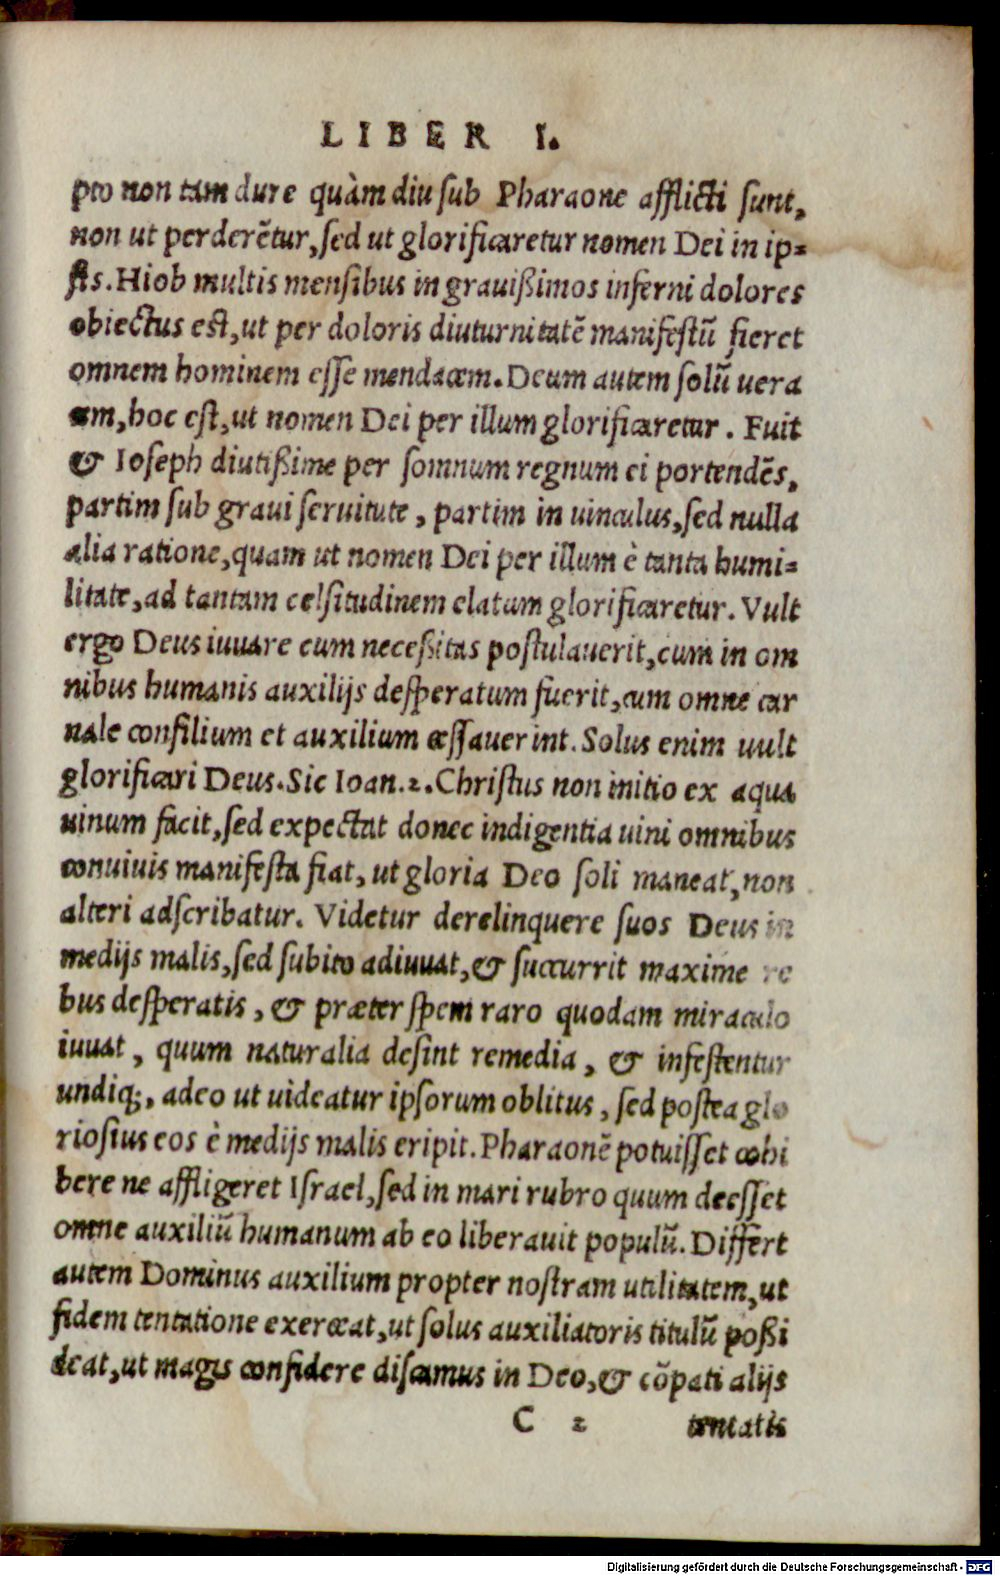 LIBER I.
pto non tam dure quàm diu sub Pharaone afflicti sunt,
non ut perderẽtur, sed ut glorificaretur nomen Dei in ip=
sis. Hiob multis mensibus in grauißimos inferni dolores
obiectus est, ut per doloris diuturnitatẽ manifestũ fieret
omnem hominem esse mendacem. Deum autem solũ uera
cem, hoc est, ut nomen Dei per illum glorificaretur. Fuit
& Ioseph diutißime per somnum regnum ei portendẽs,
partim sub graui seruitute, partim in uinculus, sed nulla
alia ratione, quam ut nomen Dei per illum è tanta humi=
litate, ad tantam celsitudinem elatum glorificaretur. Vult
ergo Deus iuuare cum neceßitas postulauerit, cum in om
nibus humanis auxilijs desperatum fuerit, cum omne car
nale consilium et auxilium cessauerint. Solus enim uult
glorificari Deus. Sic Ioan. 2. Christus non initio ex aqua
uinum facit, sed expectat donec indigentia uini omnibus
conuiuis manifesta fiat, ut gloria Deo soli maneat, non
alteri adscribatur. Videtur derelinquere suos Deus in
medijs malis, sed subito adiuuat, & succurrit maxime re
bus desperatis, & præter spem raro quodam miraculo
iuuat, quum naturalia desint remedia, & infestentur
undiq;, adeo ut uideatur ipsorum oblitus, sed postea glo
riosius eos è medijs malis eripit. Pharaonẽ potuisset cohi
bere ne affligeret Israel, sed in mari rubro quum deesset
omne auxiliũ humanum ab eo liberauit populũ. Differt
autem Dominus auxilium propter nostram utilitatem, ut
fidem tentatione exerceat, ut solus auxiliatoris titulũ poßi
deat, ut magis confidere discamus in Deo, & cõpati alijs
C 2 tentatis
Digitalisierung gefördert durch die Deutsche Forschungsgemeinschaft - DFG